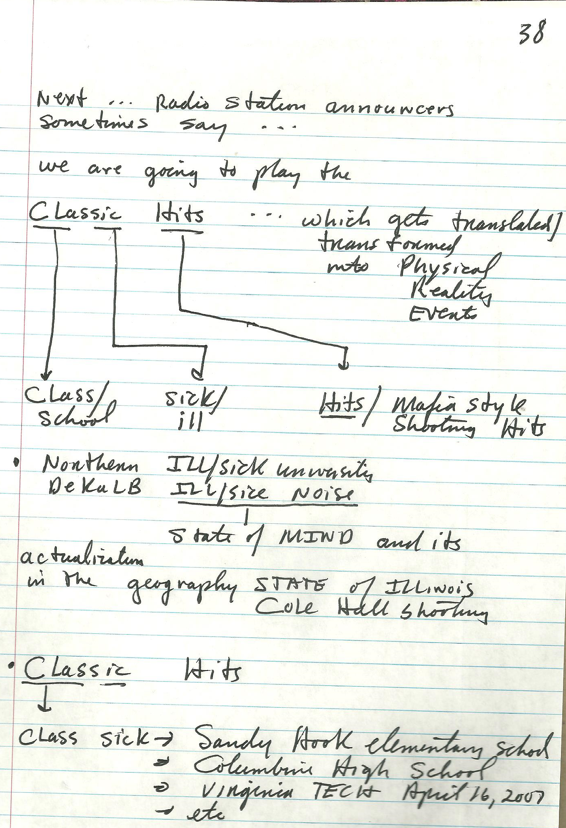 38
Next ... Radio Station announcers
sometimes say ...
we are going to play the
CLassic Hits ... which gets translated/
transformed
into Physical
Reality
Events
Class/ sick/ Hits/ Mafia style
School ill Shooting Hits
• Northern ILL/sick university
DeKaLB ILL/sick NOISE
State of MIND and its
actualization
in the geography STATE of ILLinois
Cole Hall shooting
• CLassic Hits
CLass sick → Sandy Hook elementary school
→ Columbine High School
→ Virginia TECH April 16, 2007
→ etc